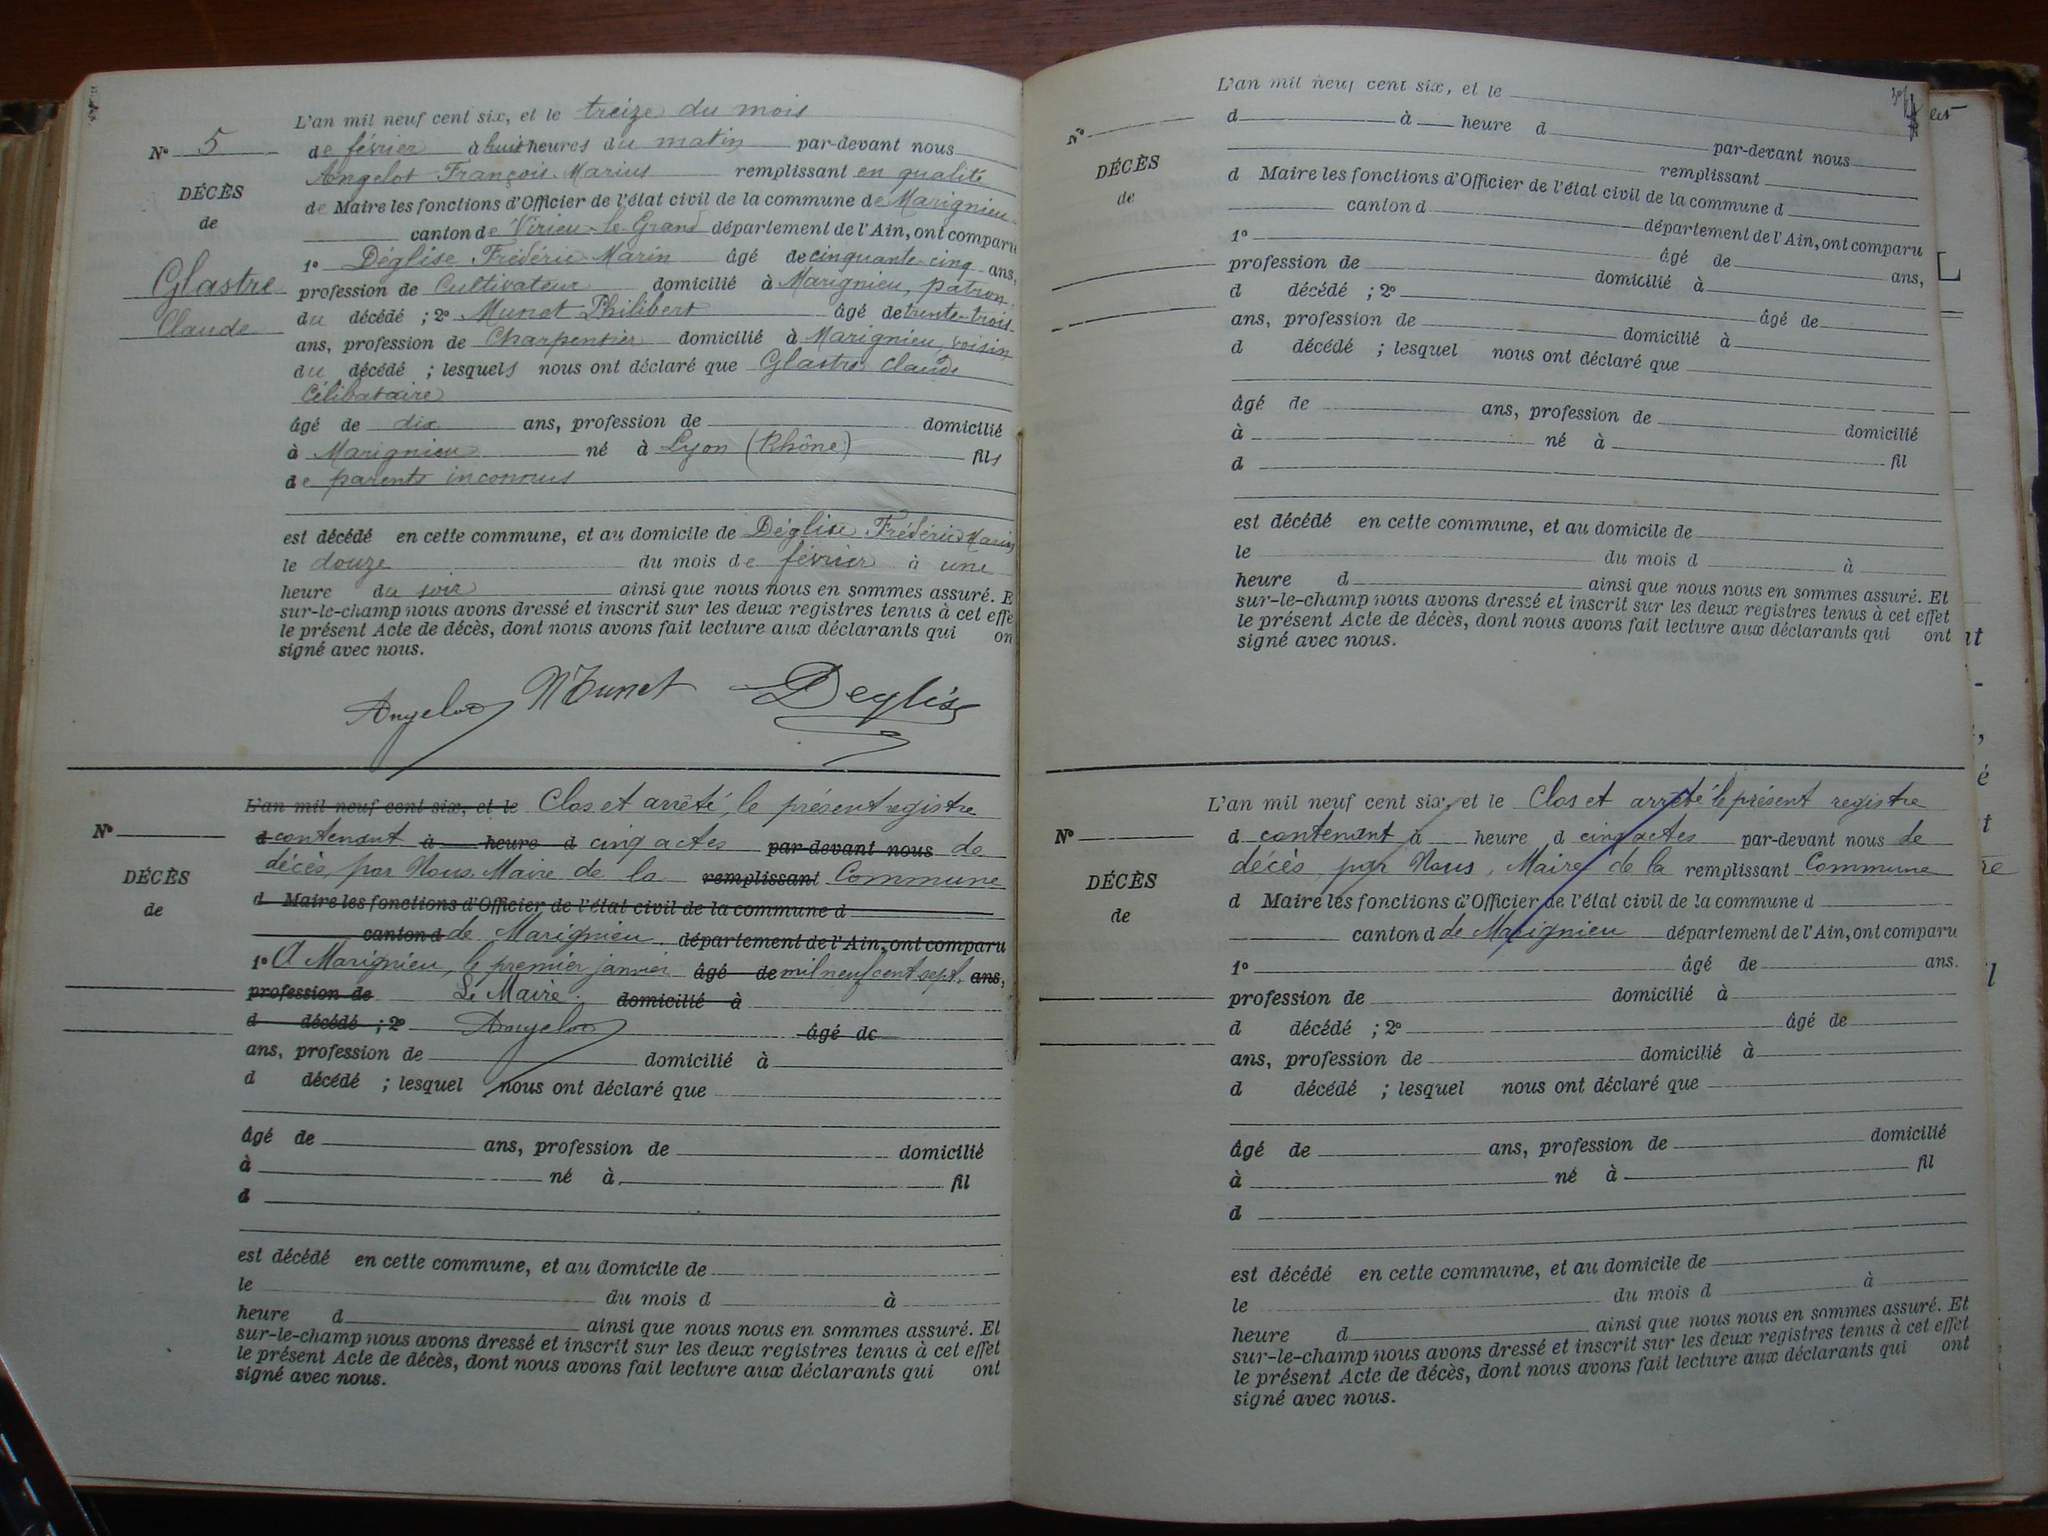 L'an mil neuf cent six, et le treize du mois
N° 5
de février à huit heures du matin par-devant nous
Angelot François Marius remplissant en qualité
DÉCÈS
de Maire les fonctions d'Officier de l'état civil de la commune de Marignieu
de
canton de Virieu-le-Grand département de l'Ain, ont comparu
1° Déglise Frédéric Marin âgé de cinquante-cinq ans,
Glastre
profession de Cultivateur domicilié à Marignieu, patron
du décédé ; 2° Munet Philibert âgé de trente-trois
Claude
ans, profession de Charpentier domicilié à Marignieu, voisin
du décédé ; lesquels nous ont déclaré que Glastre Claude
Célibataire
âgé de dix ans, profession de domicilié
à Marignieu né à Lyon (Rhône) fils
de parents inconnus
est décédé en cette commune, et au domicile de Déglise Frédéric Marin
le douze du mois de février à une
heure du soir ainsi que nous nous en sommes assuré. E
sur-le-champ nous avons dressé et inscrit sur les deux registres tenus à cet effe
le présent Acte de décès, dont nous avons fait lecture aux déclarants qui on
signé avec nous.
Angelot Munet Deglise
L'an mil neuf cent six, et le Clos et arrêté, le présent registre
N°
d contenant à heure d cinq actes par-devant nous de
décès, par Nous, Maire de la remplissant Commune
DÉCÈS
d Maire les fonctions d'Officier de l'état civil de la commune d
de
canton d de Marignieu. département de l'Ain, ont comparu
1° A Marignieu, le premier janvier âgé de mil neuf cent sept. ans,
profession de Le Maire. domicilié à
d décédé ; 2° Angelot âgé de
ans, profession de domicilié à
d décédé ; lesquel nous ont déclaré que
âgé de ans, profession de domicilié
à né à fil
d
est décédé en cette commune, et au domicile de
le du mois d à
heure d ainsi que nous nous en sommes assuré. Et
sur-le-champ nous avons dressé et inscrit sur les deux registres tenus à cet effet
le présent Acte de décès, dont nous avons fait lecture aux déclarants qui ont
signé avec nous.
L'an mil neuf cent six, et le
N°
d à heure d par-devant nous
remplissant
DÉCÈS
d Maire les fonctions d'Officier de l'état civil de la commune d
de
canton d département de l'Ain, ont comparu
1° âgé de ans,
profession de domicilié à
d décédé ; 2° âgé de
ans, profession de domicilié à
d décédé ; lesquel nous ont déclaré que
âgé de ans, profession de domicilié
à né à fil
d
est décédé en cette commune, et au domicile de
le du mois d à
heure d ainsi que nous nous en sommes assuré. Et
sur-le-champ nous avons dressé et inscrit sur les deux registres tenus à cet effet
le présent Acte de décès, dont nous avons fait lecture aux déclarants qui ont
signé avec nous.
L'an mil neuf cent six, et le Clos et arrêté le présent registre
N°
d contenant à heure d cinq actes par-devant nous de
décès, par Nous, Maire de la remplissant Commune
DÉCÈS
d Maire les fonctions d'Officier de l'état civil de la commune d
de
canton d de Marignieu département de l'Ain, ont comparu
1° âgé de ans.
profession de domicilié à
d décédé ; 2° âgé de
ans, profession de domicilié à
d décédé ; lesquel nous ont déclaré que
âgé de ans, profession de domicilié
à né à fil
d
est décédé en cette commune, et au domicile de
le du mois d à
heure d ainsi que nous nous en sommes assuré. Et
sur-le-champ nous avons dressé et inscrit sur les deux registres tenus à cet effet
le présent Acte de décès, dont nous avons fait lecture aux déclarants qui ont
signé avec nous.